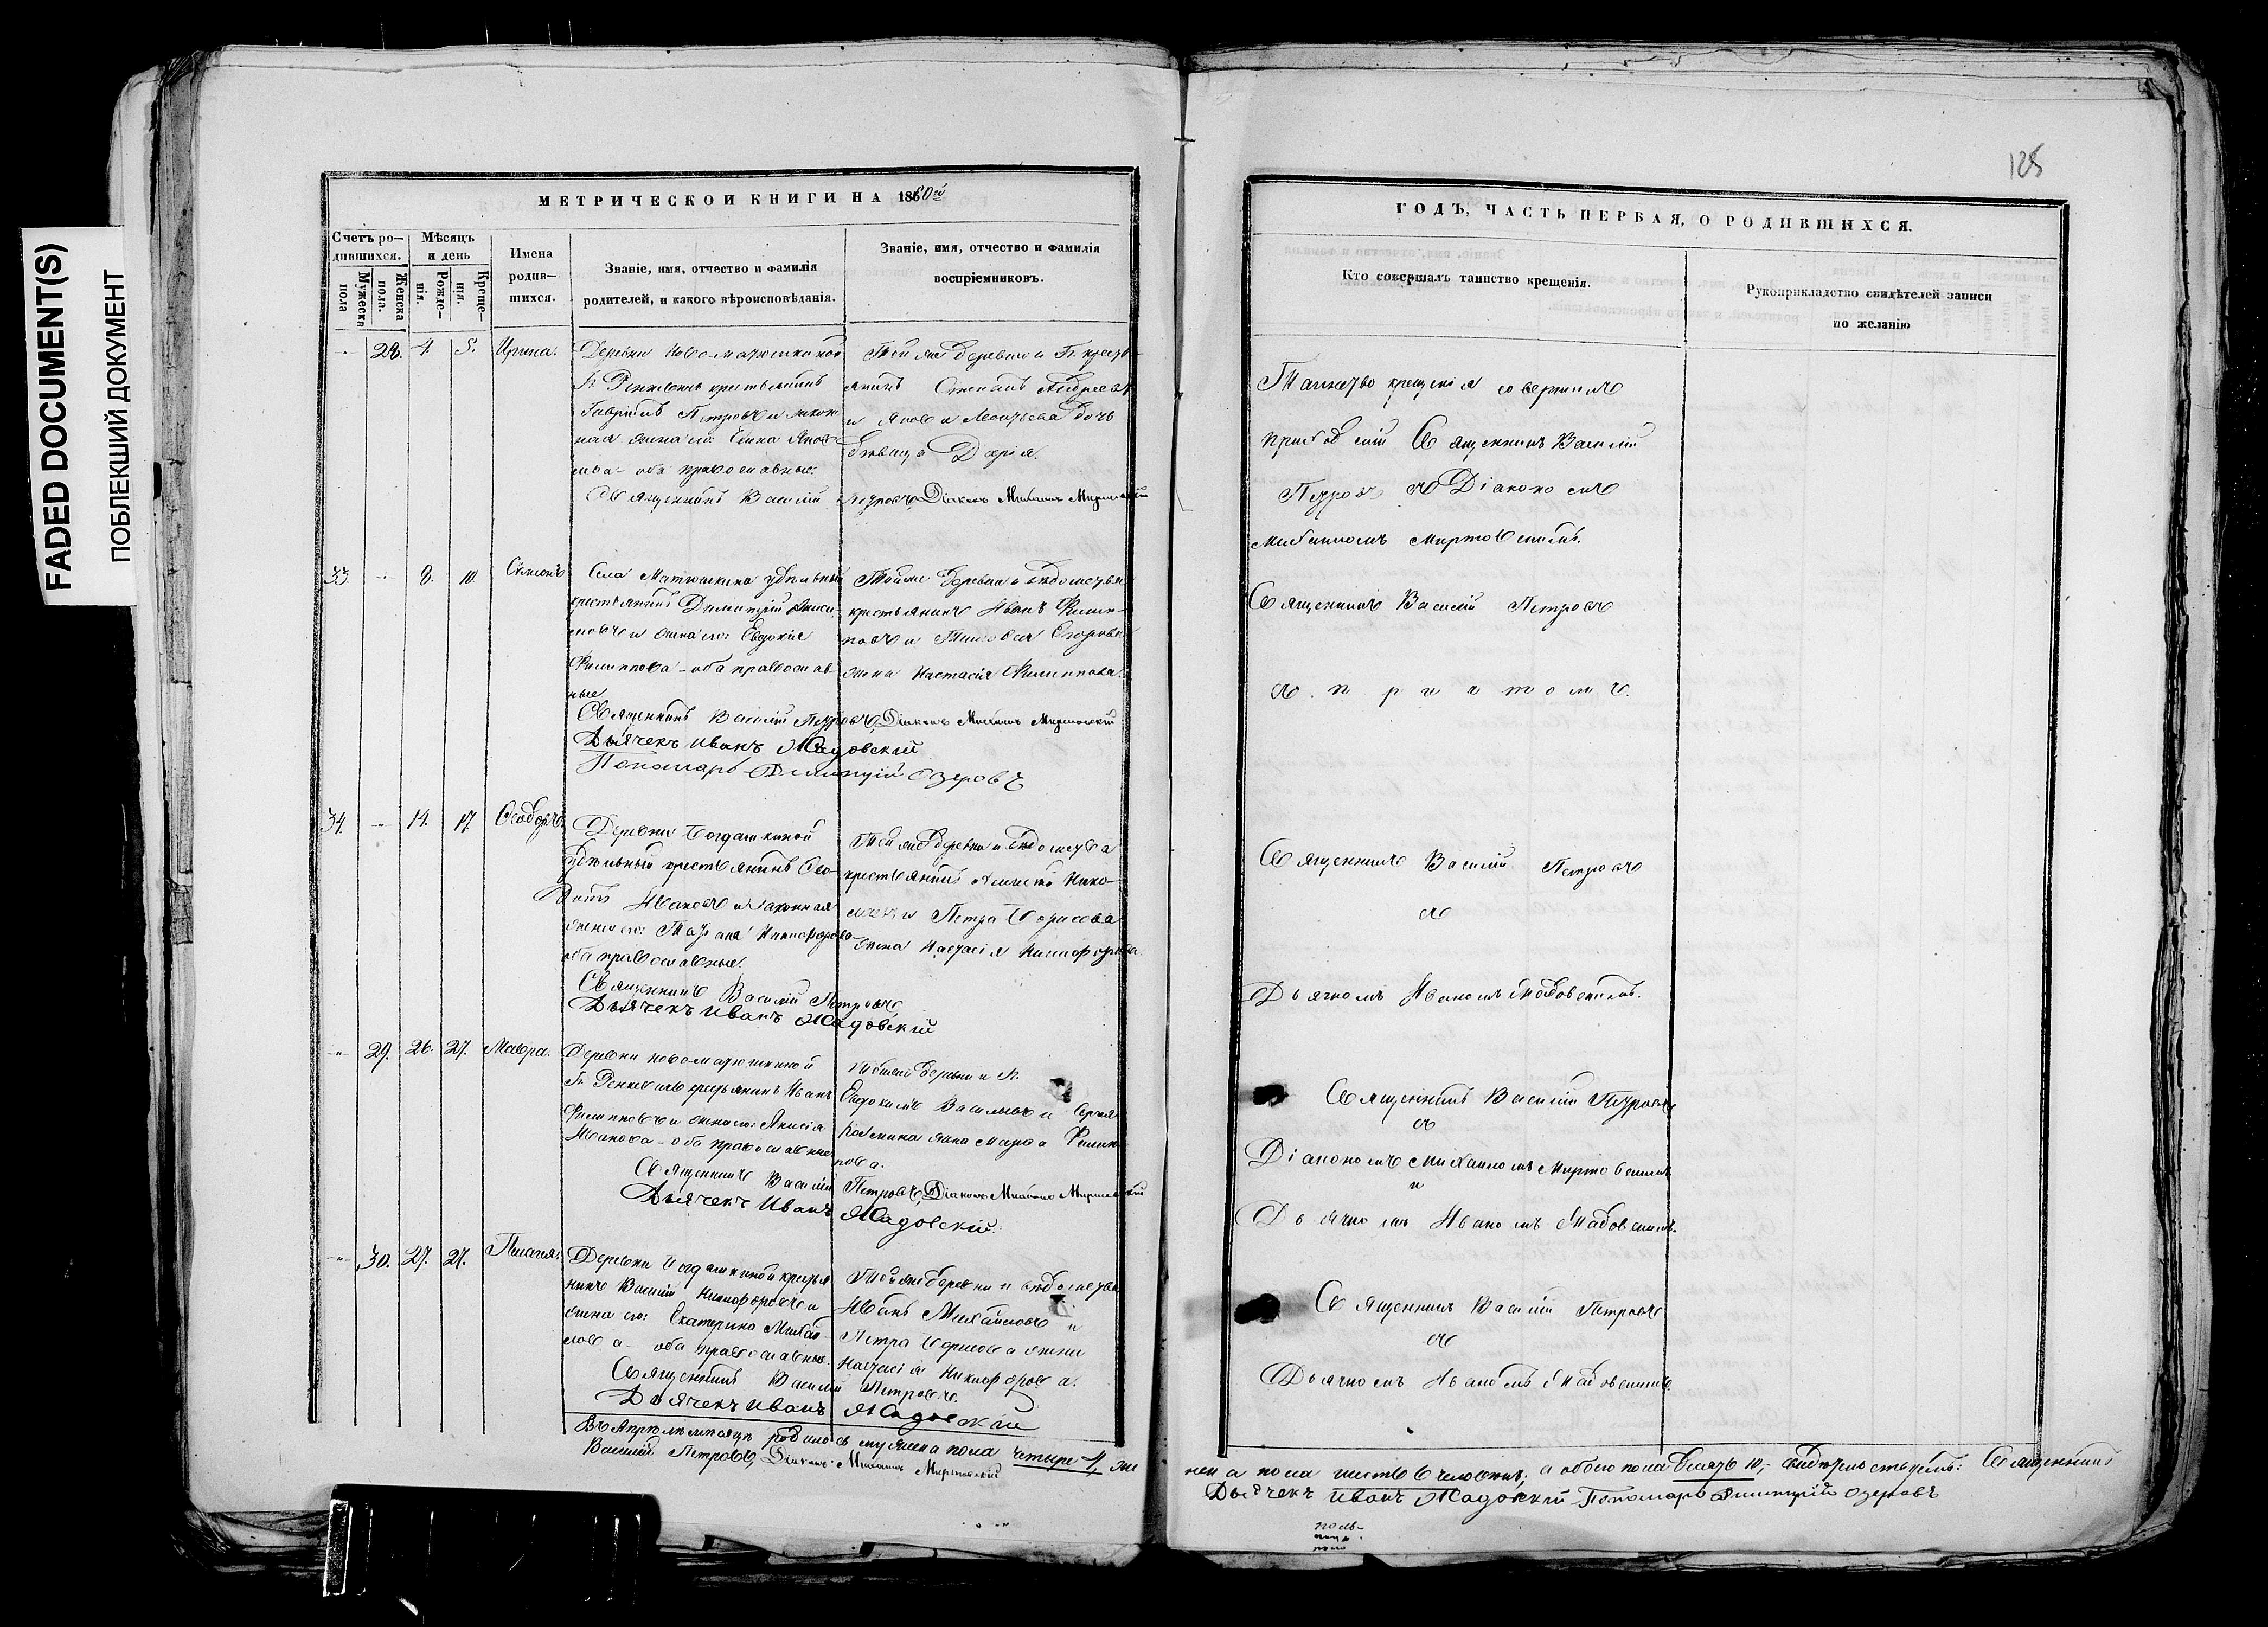 FADED DOCUMENT(S)
ПОБЛЕКШИЙ ДОКУМЕНТ
МЕТРИЧЕСКОИ КНИГИ НА 1860й
Счетъ родившихся.
Мужеска пола
Женска пола.
Мѣсяцъ и день
Рожденія.
Крещенія.
Имена родившихся.
Званіе, имя, отчество и фамилія
родителей, и какого вѣроисповѣданія.
Званіе, имя, отчество и фамилія
воспріемниковъ.
28. 4. 5. Ирина.
Деревни Новоматюшкиной
крестьянинъ
Гавріилъ Петровъ и закон
ная жена его Яков
лева - оба православные.
Той же деревни крестья
нинъ Степанъ Андреевъ
и Якова Леонтьева дочь
девица Дарія.
Священникъ Василій Петровъ, Діаконъ Михаилъ Миртовскій
33. 8. 10. Симеонъ
Села Матюшкина удѣльный
крестьянинъ Димитрій
и жена его: Евдокія
Филиппова - оба православ
ные
Той же деревни и вѣдомства
крестьянинъ Иванъ Филип
повъ и Егорова
жена Настасія Филиппова.
Священникъ Василій Петровъ, Діаконъ Михаилъ Миртовскій
Дьячекъ Иванъ Жадовскій
Пономарь Димитрій Озеровъ
34. 14. 17. Ѳеодоръ
Деревни Богдашкиной
удѣльный крестьянинъ
Ивановъ и законная
жена его: Татіана Никифорова
оба православные.
Той же деревни и вѣдомства
крестьянинъ
и Петра Борисова
жена Настасія Никифорова
Священникъ Василій Петровъ
Дьячекъ Иванъ Жадовскій
29. 26. 27. Мавра.
Деревни новоматюшкиной
крестьянинъ Иванъ
Филипповъ и жена его: Анисія
Иванова - оба православные
деревни
Евдокимъ Васильевъ и Сергея
жена Марѳа Филип
пова.
Священникъ Василій Петровъ, Діаконъ Михаилъ Миртовскій
Дьячекъ Иванъ Жадовскій.
30. 27. 27. Пелагея.
Деревни Богдашкиной крестья
нинъ Василій Никифоровъ и
жена его: Екатерина Михай
лова - оба православные.
Той же деревни и вѣдомства
Иванъ Михайловъ и
Петра Борисова жена
Настасія Никифорова.
Священникъ Василій Петровъ.
Дьячекъ Иванъ Жадовскій
Въ Апрѣлѣ мѣсяцѣ родилось мужеска пола четыре 4, же
Василій Петровъ, Діаконъ Михаилъ Миртовскій
125
ГОДЪ, ЧАСТЬ ПЕРВАЯ, О РОДИВШИХСЯ.
Кто совершалъ таинство крещенія.
Рукоприкладство свидѣтелей записи
по желанію
Таинство крещенія совершилъ
приходскій Священникъ Василій
Петровъ съ Діакономъ
Михаиломъ Миртовскимъ.
Священникъ Василій Петровъ
съ причтомъ.
Священникъ Василій Петровъ
съ
Дьячкомъ Иваномъ Жадовскимъ.
Священникъ Василій Петровъ
съ
Діакономъ Михаиломъ Миртовскимъ
и
Дьячкомъ Иваномъ Жадовскимъ.
Священникъ Василій Петровъ
съ
Дьячкомъ Иваномъ Жадовскимъ.
нска пола шесть 6 человѣкъ; а обоего пола десять 10, свидѣтельствуемъ: Священникъ
Дьячекъ Иванъ Жадовскій Пономарь Димитрій Озеровъ